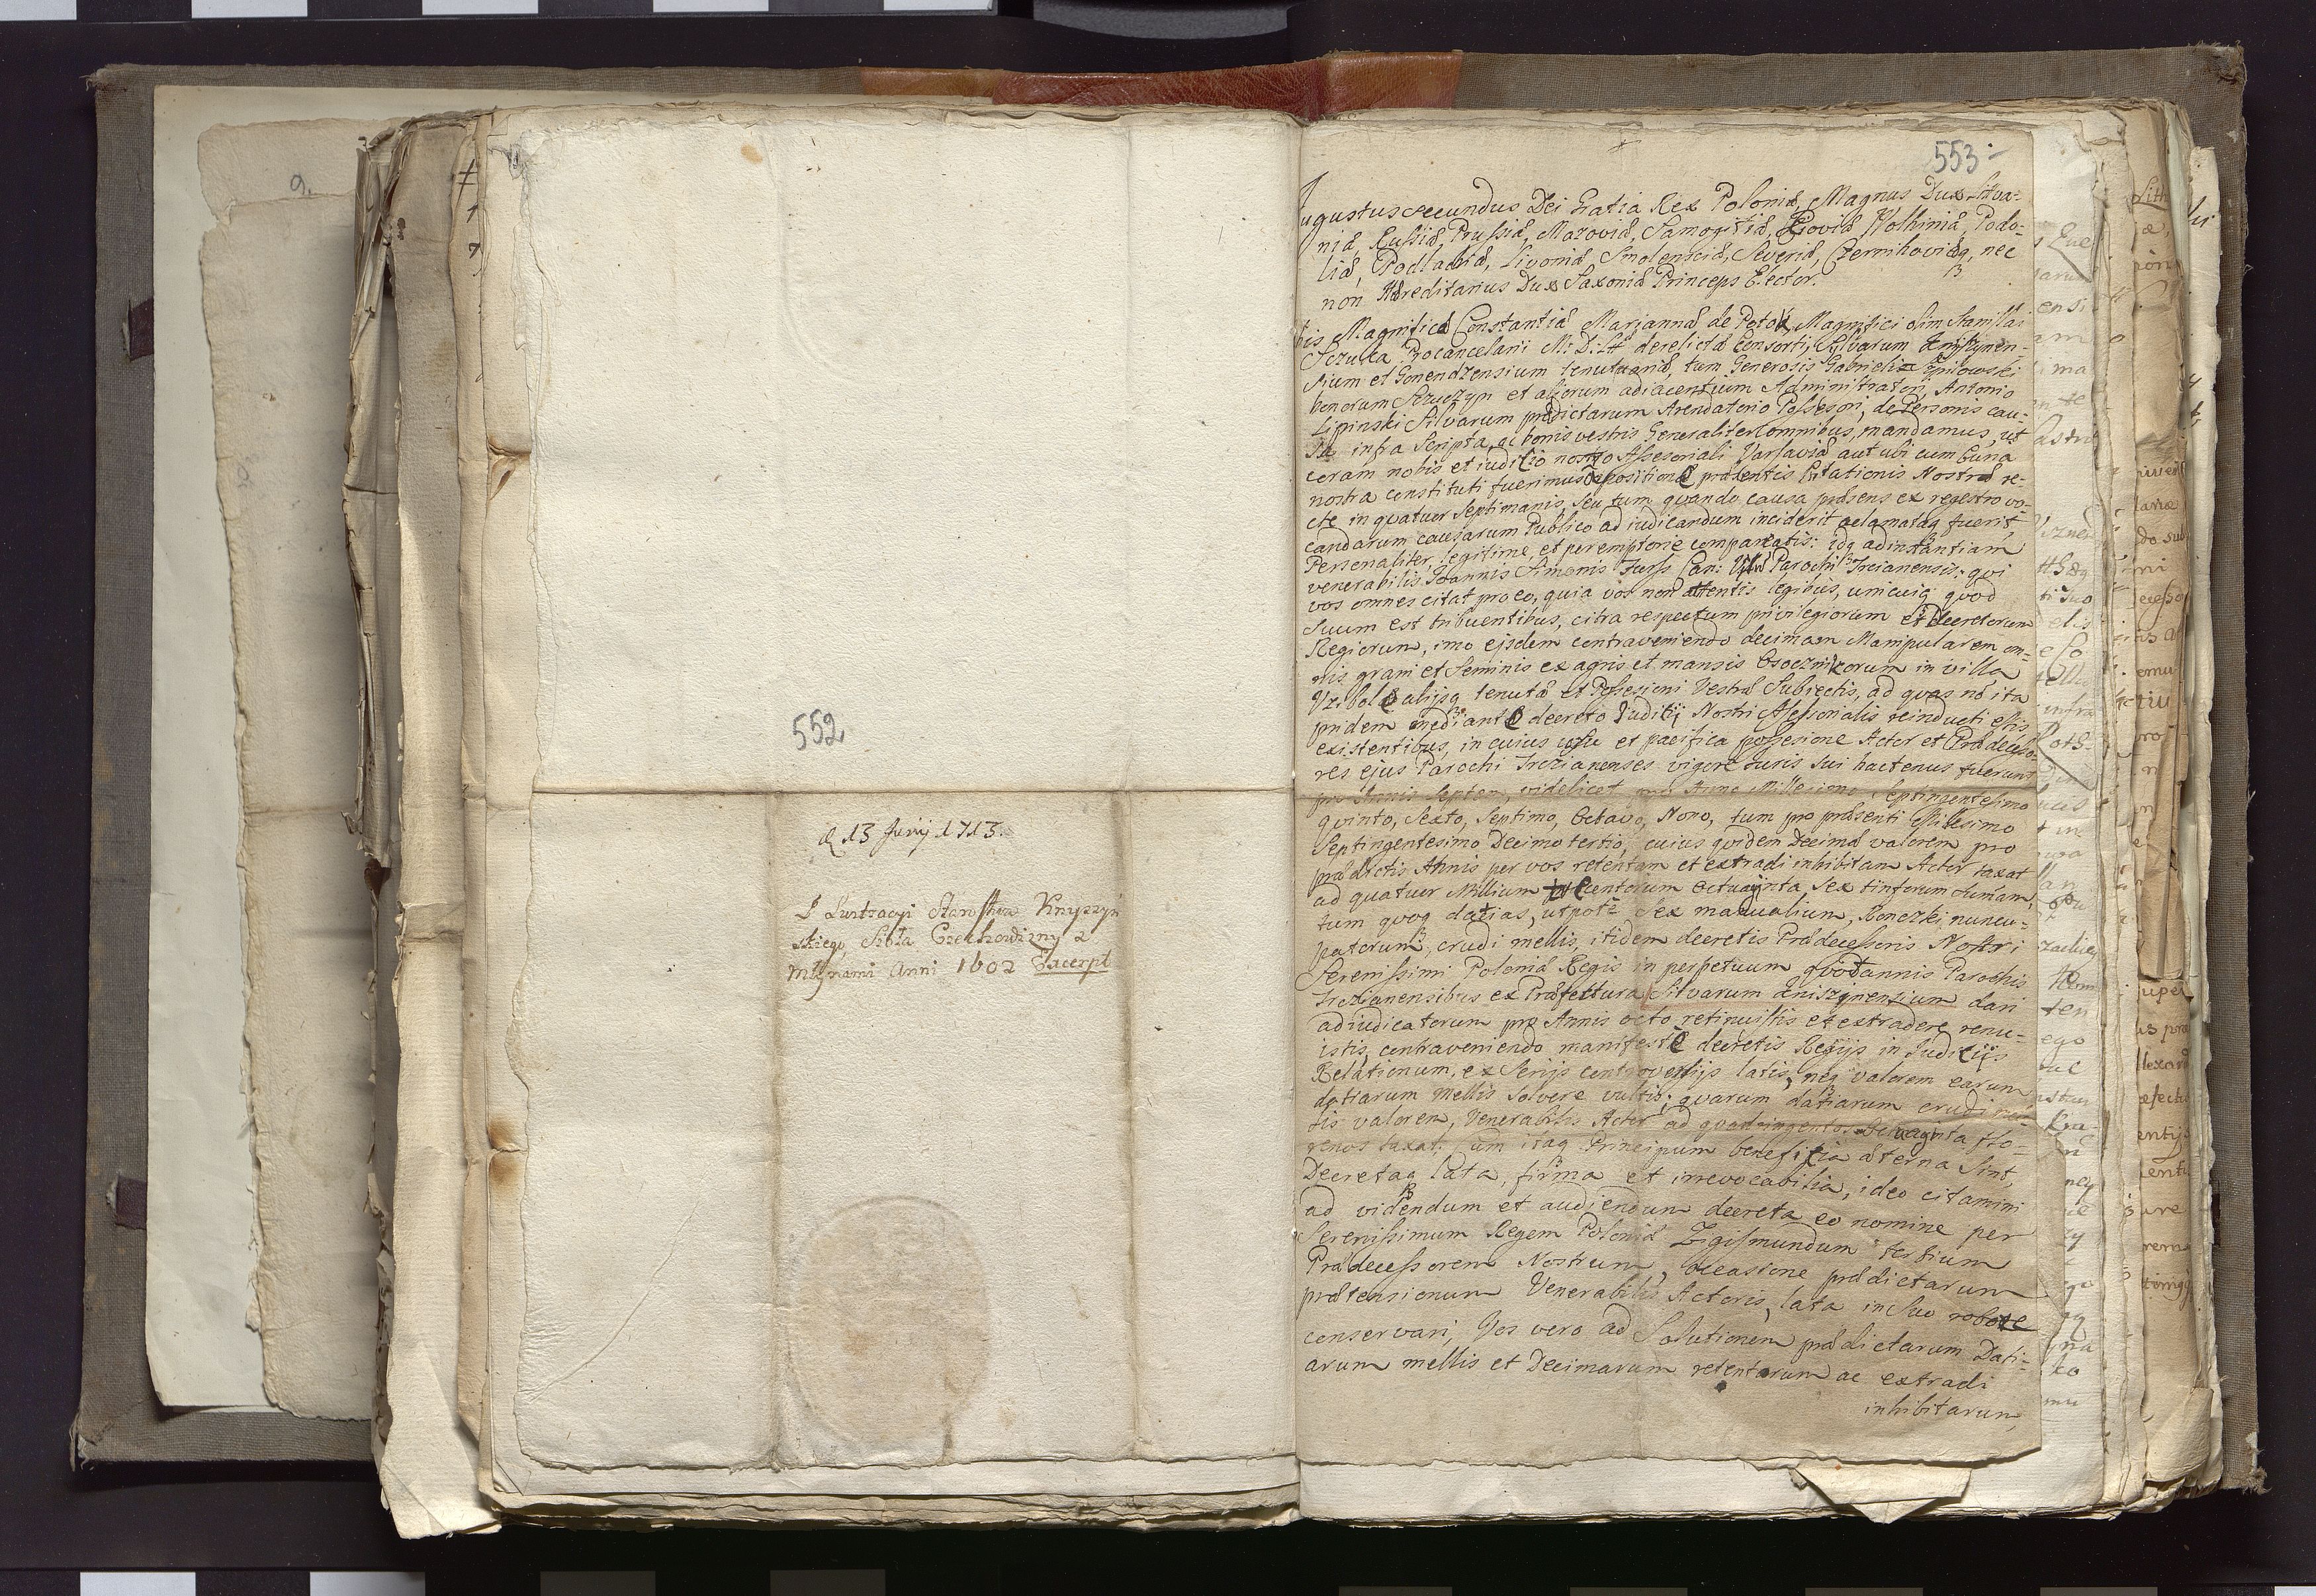 552
d 13 Junij 1713.
Z Lustracyi Starostwa Knyszyń
skiego Sioła Czechowizny z
Młynami Anni 1602 Excerpt
553
Augustus secundus Dei Gratia Rex Poloniæ, Magnus Dux Litva-
niæ, Russiæ, Prussiæ, Mazoviæ, Samogitiæ, Kiioviæ Volhiniæ, Podo-
liæ, Podlachiæ, Livoniæ Smolensciæ, Severiæ, Czernihoviæq, nec
non Hæreditarius Dux Saxoniæ Princeps Elector.
bis Magnificæ Constantiæ Mariannæ de Potok, Magnifici olim Stanislai
Szczuka Procancelarii M: D: Lit derelictæ Consorti, Sylvarum Knyszynen-
sium et Gonendzensium tenutariæ, tum Generosis Gabrieli
bonorum Szczuczyn et aliorum adiacentium Administratori, Antonio
Lipinski Silvarum prædictarum Arendatorio Possesori, de Personis cau-
sa infra Scripta, ac bonis vestris Generaliter omnibus, mandamus, ut
coram nobis et iudicio nostro Assesoriali Varsaviæ aut ubi cum Curia
nostra constituti fuerimus à positione præsentis Citationis Nostræ re-
cte in quatuor Septimanis, seu tum quando causa præsens ex regestro vo-
candarum causarum Publico ad iudicandum inciderit aclamataq fuerit
Personaliter, legitime, et peremptorie compareatis: idq ad instantiam
venerabilis Joannis Simonis Turss Can: Parochi Trcianensis: qui
vos omnes citat pro eo, quia vos non attentis legibus, unicuiq quod
Suum est tribuentibus, citra respectum privilegiorum et decretorum
Regiorum, imo ejsdem contraveniendo decimam Manipularem om-
nis grani et Seminis ex agris et mansis Osocznikorum in villa
alijsq tenutæ et Possesioni Vestræ Subiectis, ad quas nō ita
pridem mediantè decreto Judicij Nostri Assessorialis reinducti estis
existentibus, in cuius usu et pacifica possesione Actor et Prædecesso-
res ejus Parochi Trczianenses vigore Juris sui hactenus fuerunt
pro Annis Septem, videlicet pro Anno Millesimo Septingentesimo
quinto, Sexto, Septimo, Octavo, Nono, tum pro præsenti Millesimo
Septingentesimo Decimo tertio, cuius quidem Decimæ valorem pro
prædictis Annis per vos retentam et extradi inhibitam Actor taxat
ad quatuor Millium centorum octuaginta Sex tinforum Sumam,
tum quoq datias, utpotè Sex manualium, Rączki nuncu-
patorum, crudi mellis, itidem decretis Prædecessoris Nostri
Serenissimi Poloniæ Regis in perpetuum quotannis Parochis
Trczianensibus ex Præfectura Silvarum Kniszynensium dari
adiudicatorum pro Annis octo retinuistis et extradere renu-
istis, contraveniendo manifestè decretis Regijs in Judicijs
Relationum, ex Serijs controversijs latis, neq valorem earum
datiarum mellis Solvere vultis; quarum datiarum crudi mel-
lis valorem, Venerabilis Actor ad quadringentos Sexaginta flo-
renos taxat: Cum itaq Principum beneficia æterna Sint,
Decretaq lata, firma et irrevocabilia, ideo citamini
ad videndum et audiendum decreta eo nomine per
Serenissimum Regem Poloniæ Zigismundum tertium
Prædecessorem Nostrum, occasione prædictarum
prætensionum Venerabilis Actoris, lata in suo robore
conservari, Vos vero ad Solutionem prædictarum Dati-
arum mellis et Decimarum retentarum ac extradi
inhibitarum,